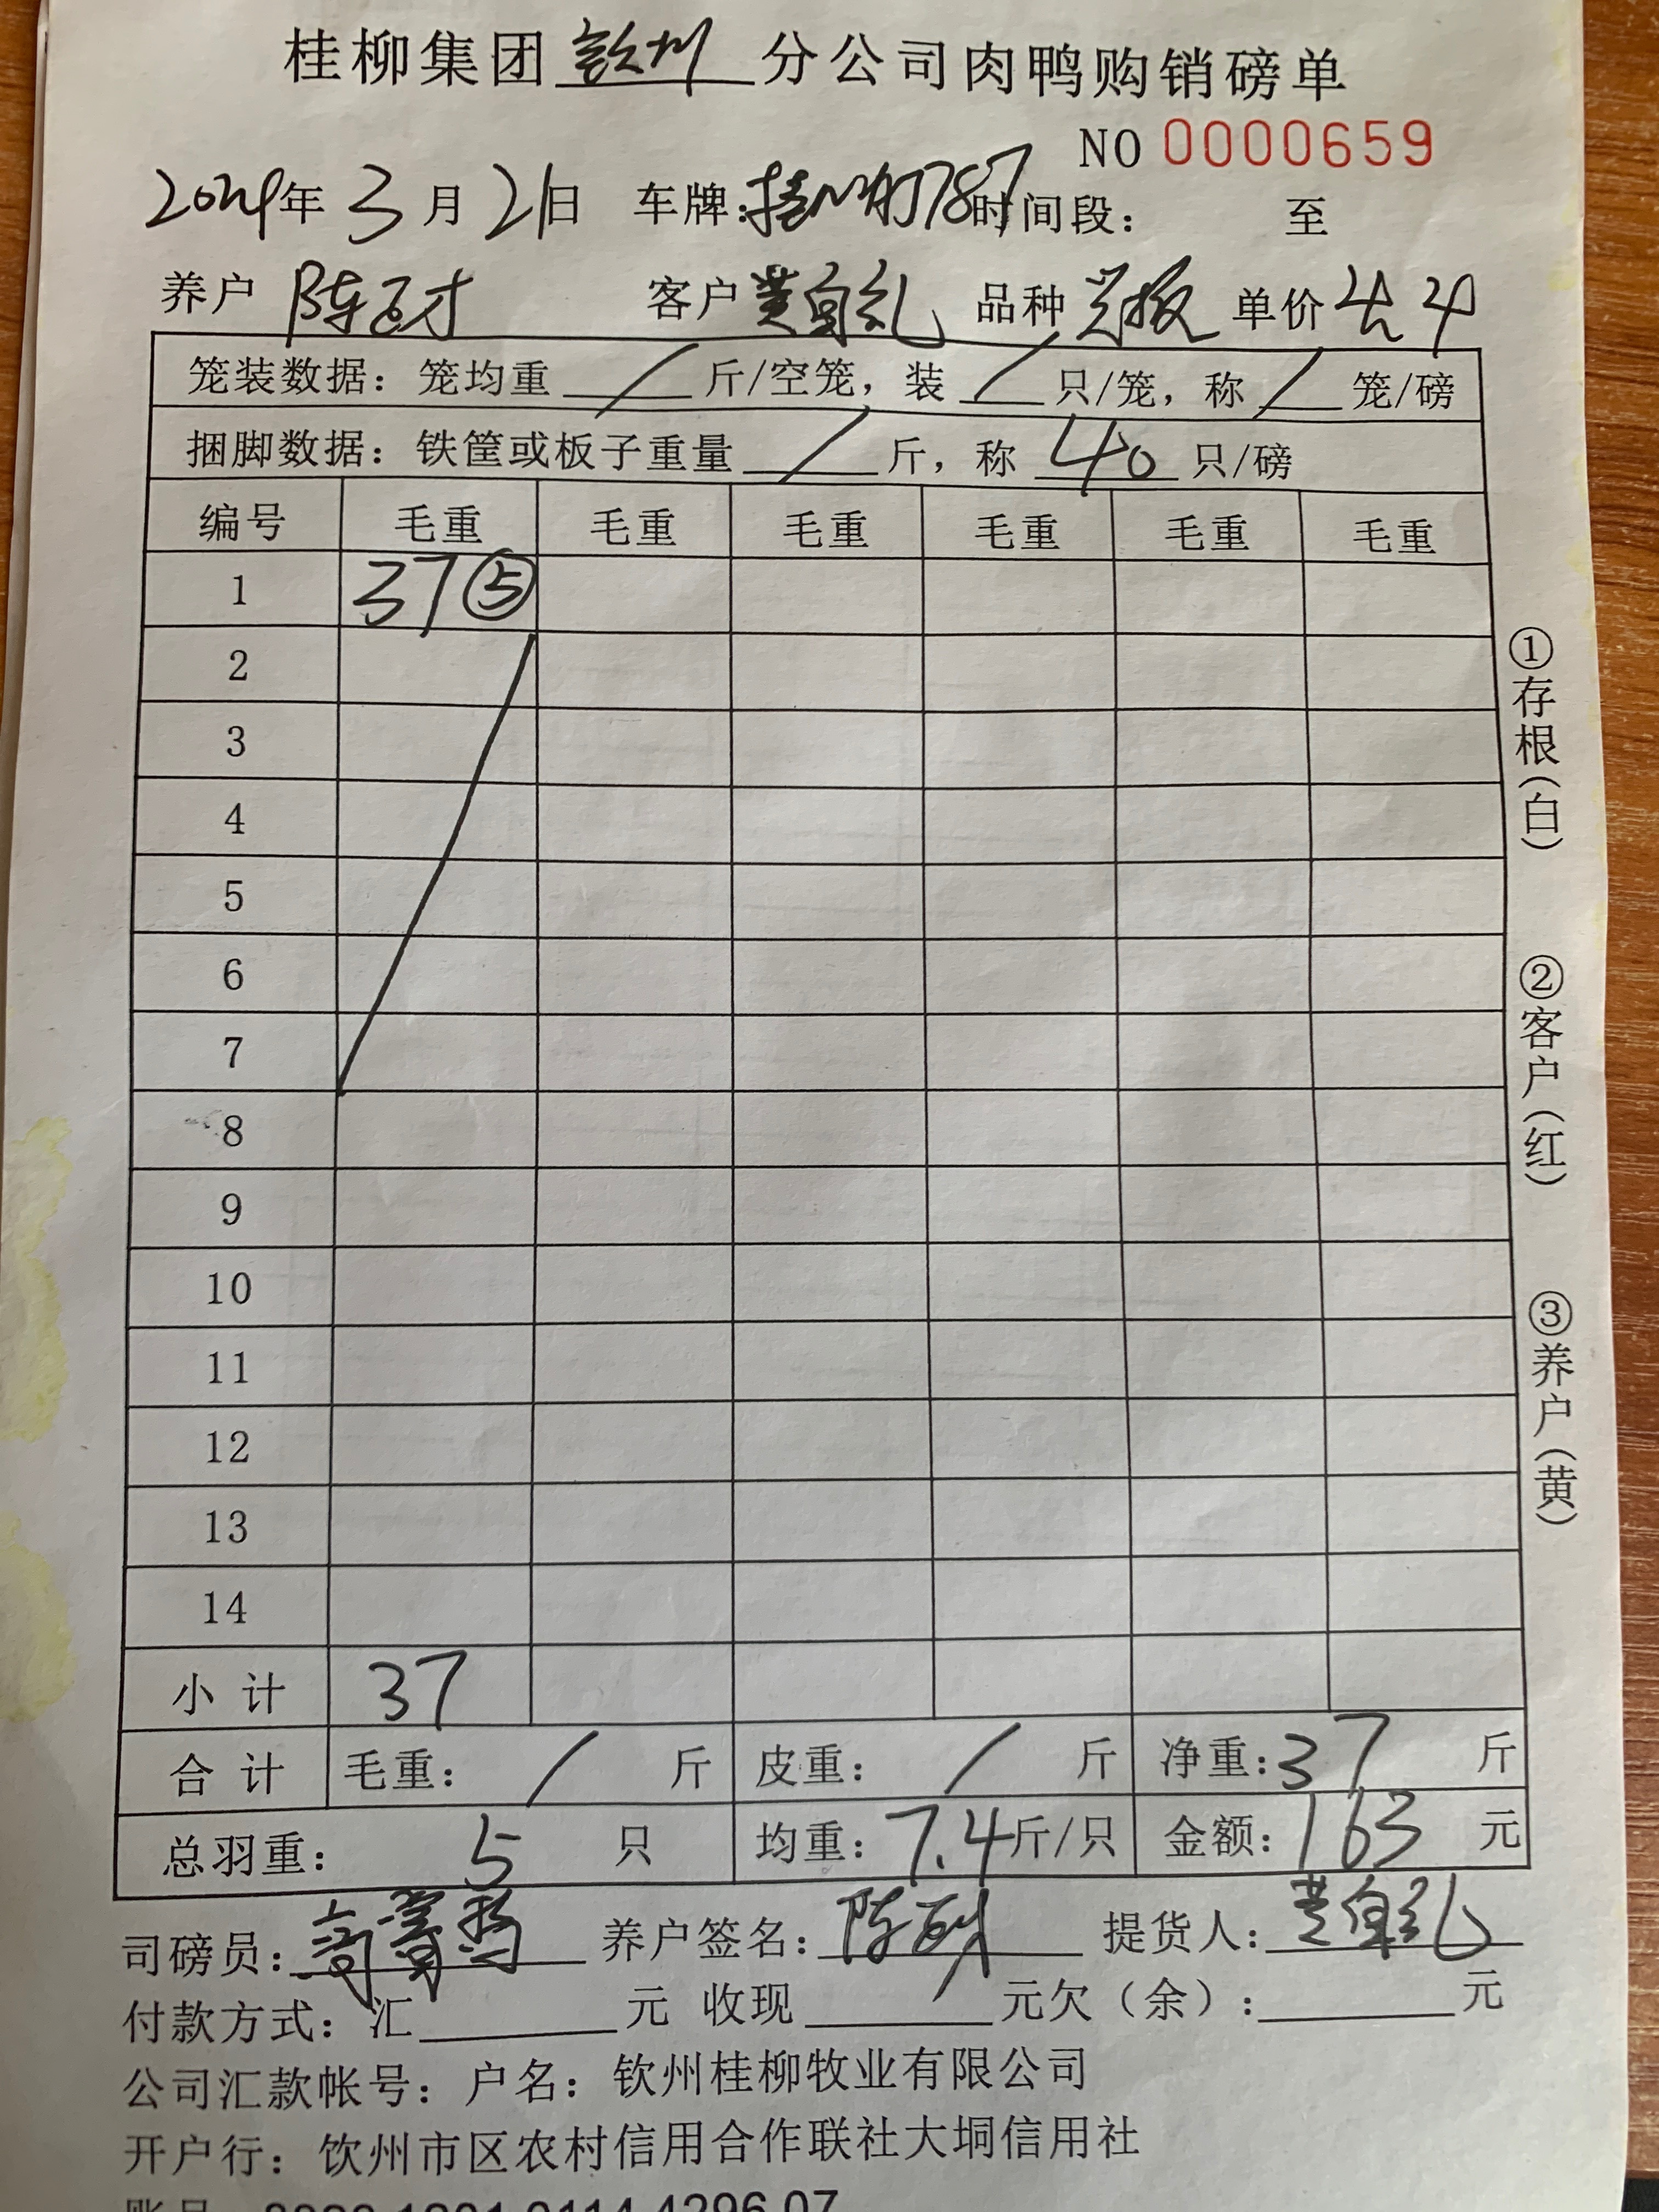 桂柳集团钦州分公司肉鸭购销磅单
NO 0000659
2024年3月21日 车牌:桂 787 时间段: 至
养户 陈 才 客户 黄 礼 品种 单价 4.4
笼装数据:笼均重 / 斤/空笼,装 / 只/笼,称 / 笼/磅
捆脚数据:铁筐或板子重量 / 斤,称 40 只/磅
编号 毛重 毛重 毛重 毛重 毛重 毛重
1 37 ⑤
2
3
4
5
6
7
8
9
10
11
12
13
14
小 计 37
合 计 毛重: / 斤 皮重: / 斤 净重:37 斤
总羽重: 5 只 均重:7.4斤/只 金额:163 元
司磅员: 养户签名:陈 提货人:黄 礼
付款方式:汇 元 收现 元欠(余): 元
公司汇款帐号:户名:钦州桂柳牧业有限公司
开户行:钦州市区农村信用合作联社大垌信用社
①存根(白)
②客户(红)
③养户(黄)